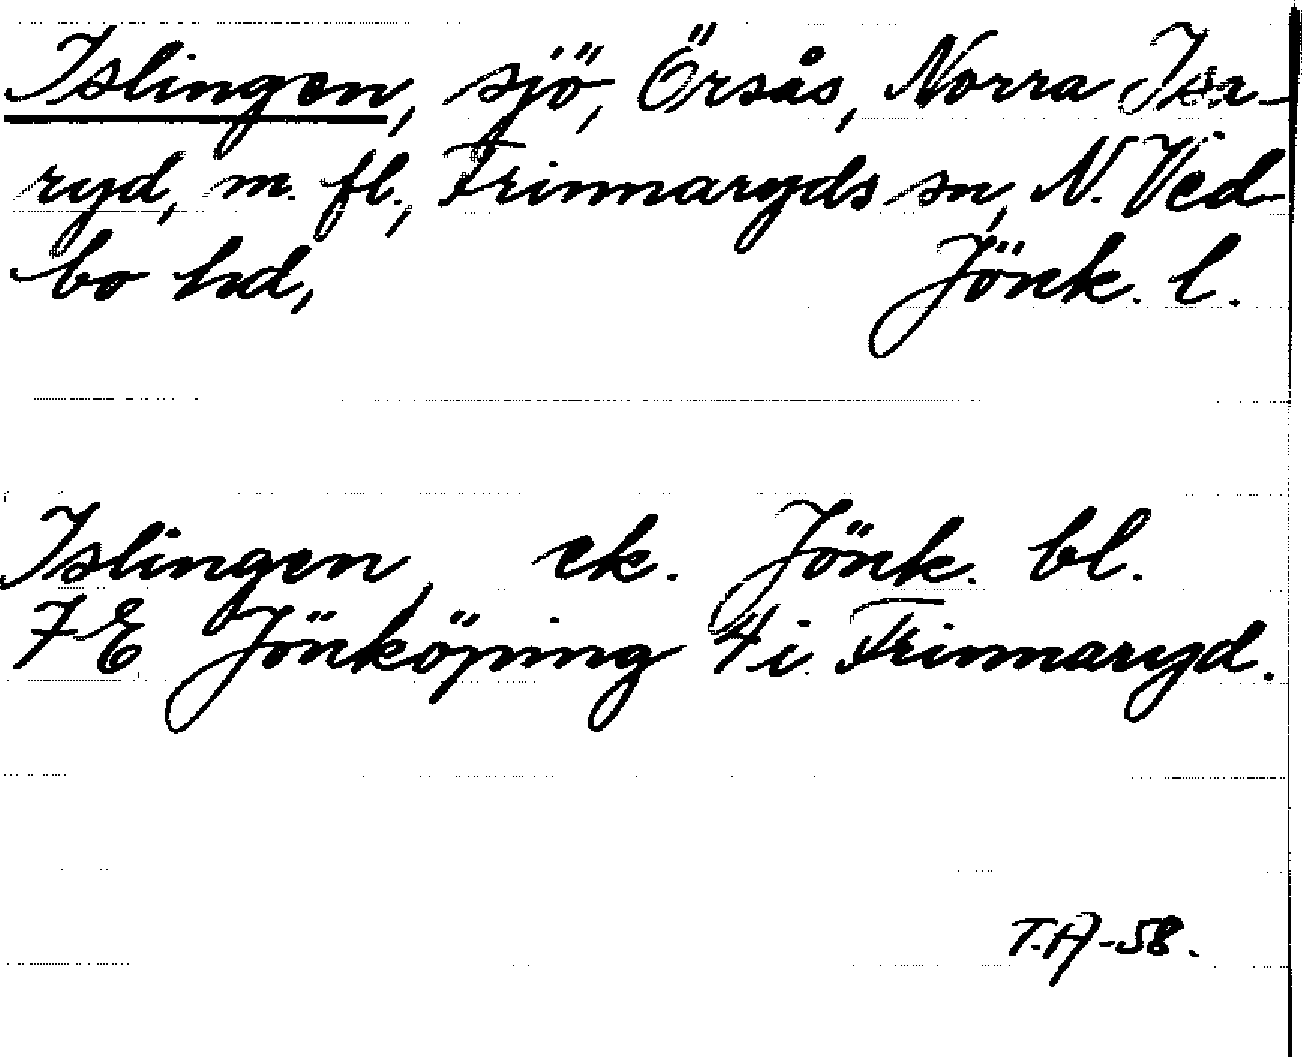 Islingen, sjö, Örsås, Norra Isr-
ryd, m. fl., Frinnaryds sn, N. Ved-
bo hd, Jönk. l.
Islingen, ek. Jönk. bl.
7E Jönköping 4i Frinnaryd.
T.A-58.